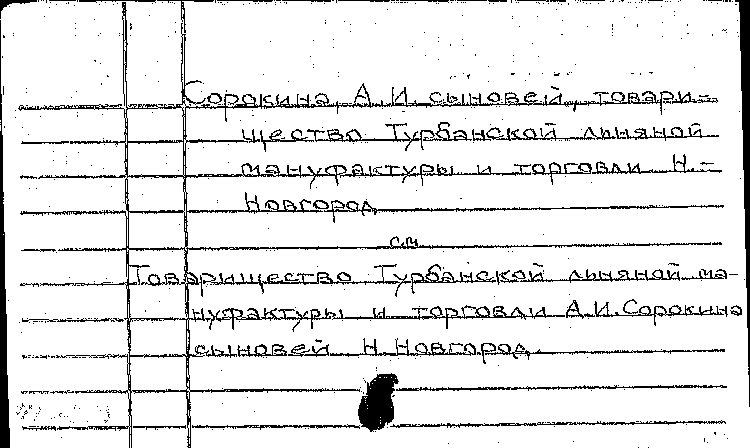 Сорокина, А.И. сыновей, товари-
щество Турбанской льняной
мануфактуры и торговли Н.-
Новгород
см
Товарищество Турбанской льняной ма-
нуфактуры и торговли А.И.Сорокина
сыновей Н.Новгород